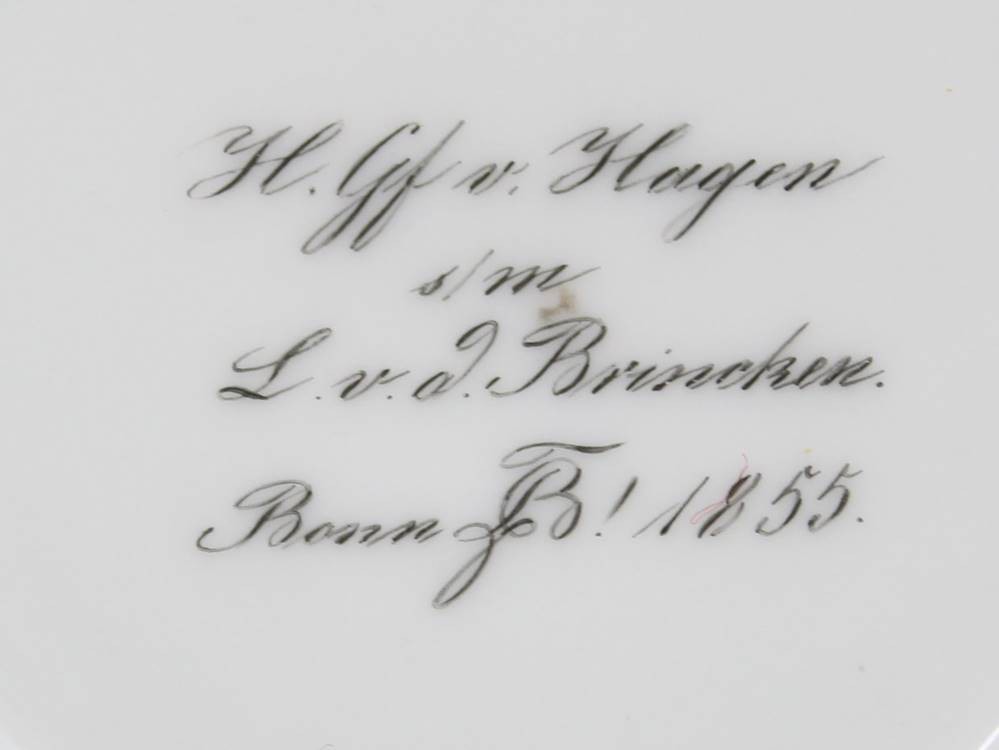 H. Gf v. Hagen
s/m
L. v. d. Brincken.
Bonn ! 1855.